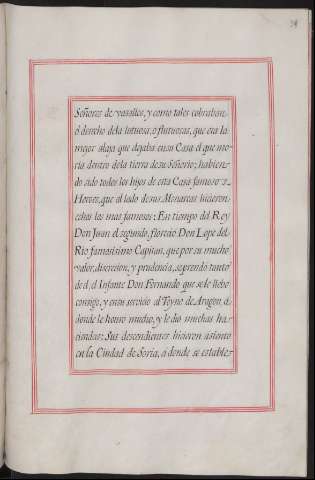 Señores de vasallos, y como tales cobraban
el derecho dela lutuosa, o flutuosas, que era la
mejor alaja que dejaba en su Casa el que mo-
ria dentro dela tierra de su Señorio; habien-
do sido todos los hijos de esta Casa famosos
Heroes, que al lado de sus Monarcas hicieron
echos los mas famosos: En tiempo del Rey
Don Juan el segundo, florecio Don Lope del
Rio famosisimo Capitan, que por su mucho
valor, discrecion, y prudencia, se prendo tanto
de el, el Infante Don Fernando que se le llebo
consigo, y en su servicio al Reyno de Aragon, a
donde le honro mucho, y le dio muchas ha-
ciendas: Sus descendientes hicieron asiento
en la Ciudad de Soria, a donde se estable-